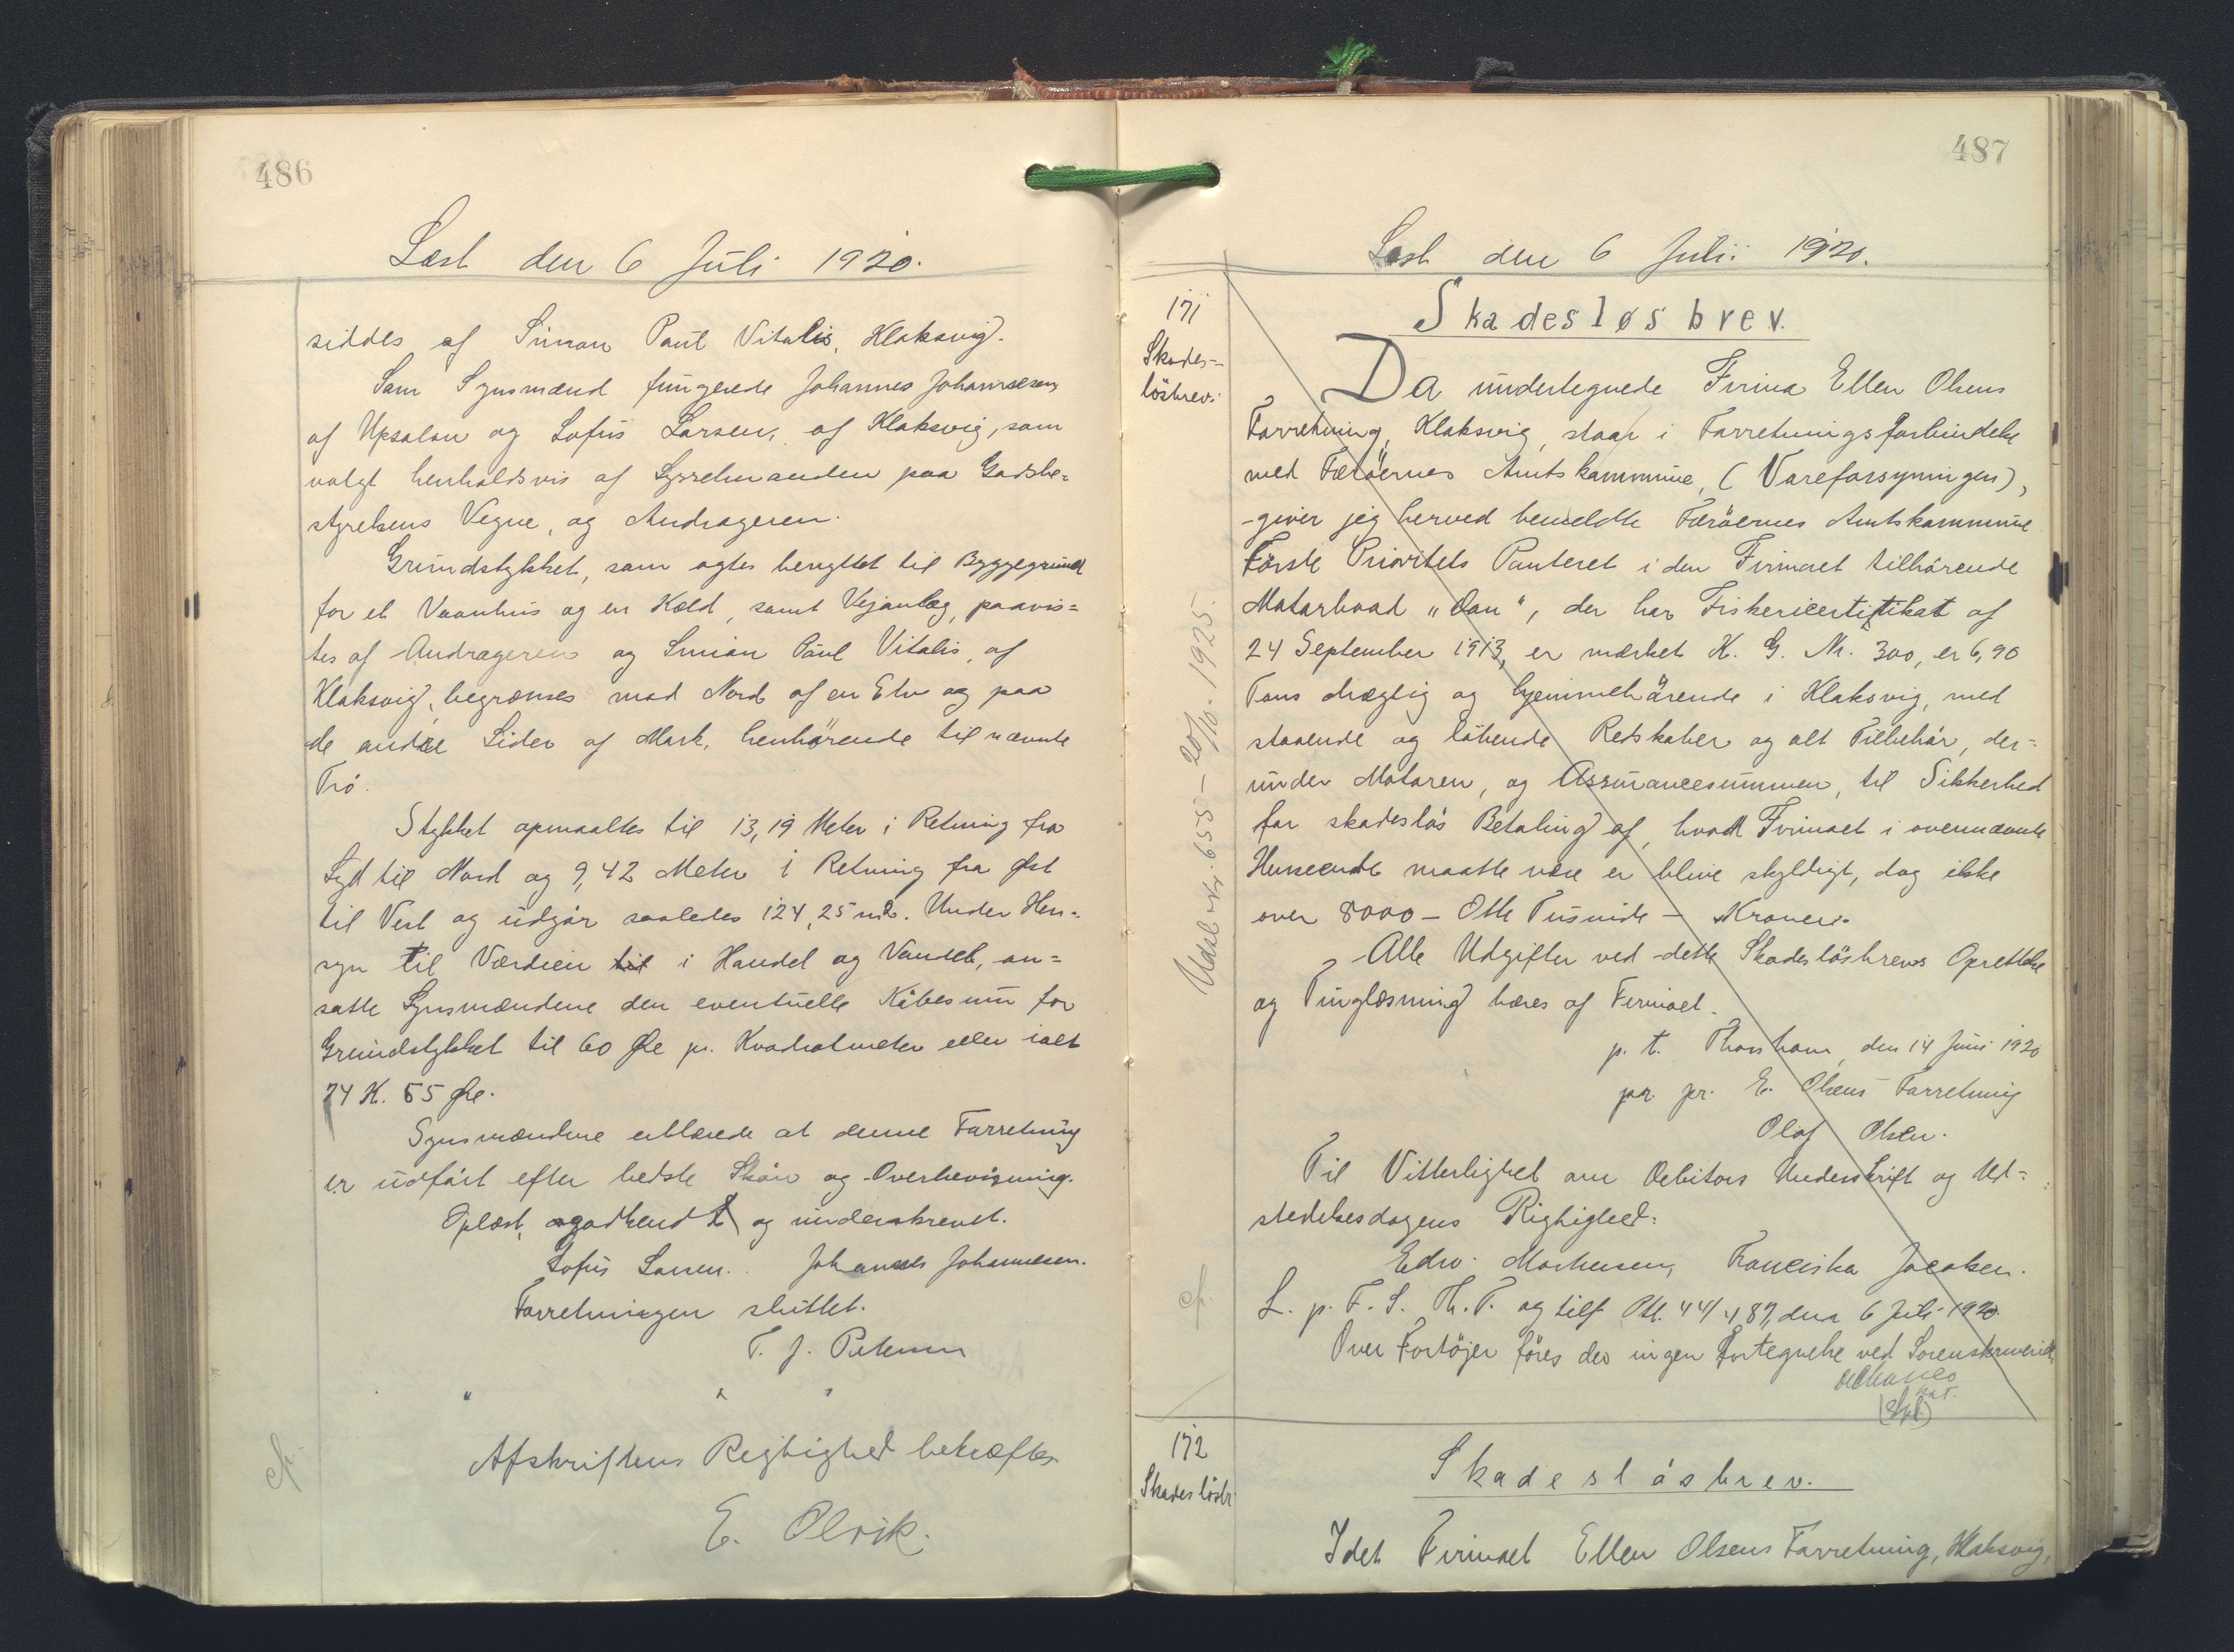 486
Læst den 6 Juli 1920.
siddes af Simon Paul Vitalis, Klaksvig.
Som Synsmænd fungerede Johannes Johannesen,
af Upsalon og Sofus Larsen, af Klaksvig, som
valgt henholdsvis af Sysselmanden paa Jordsbe=
styrelsens Vegne, og Andrageren.
Grundstykket, som agtes benyttet til Byggegrund
for et Vaanhus og en Kold, samt Vejanlæg, paavis=
tes af Andrageren og Simon Paul Vitalis, af
Klaksvig, begrænses mod Nord af en Elv og paa
de andre Sider af Mark, henhörende til nævnte
Trö.
Stykket opmaaltes til 13,19 Meter i Retning fra
Syd til Nord og 9,42 Meter i Retning fra Øst
til Vest og udgör saaledes 124,25 m2. Under Hen=
syn til Værdien til i Handel og Vandel, an=
satte Synsmændene den eventuelle Köbesum for
Grundstykket til 60 Øre pr. Kvadratmeter eller ialt
74 K. 55 Øre.
Synsmændene erklærede at denne Forretning
er udfört efter bedste Skön og Overbevisning.
Oplæst, godkendt og underskrevet.
Sofus Larsen. Johannes Johannesen.
Forretningen sluttet.
T. J. Petersen
" " "
Afskriftens Rigtighed bekræftes
E. Olrik.
cfr.
487
Læst den 6 Juli 1920.
171
Skades=
lösbrev.
Skadesløsbrev.
Da undertegnede Firma Ellen Olsens
Forretning, Klaksvig, staar i Forretningsforbindelse
med Færöernes Amtskommune, (Vareforsyningen),
-giver jeg herved bemeldte Færöernes Amtskommune
Förste Prioritets Panteret i den Firmaet tilhörende
Motorbaad "Dan", der har Fiskericertifikat af
24 September 1913, er mærket K. G. Nr. 300, er 6,90
Tons drægtig og hjemmehörende i Klaksvig, med
staaende og löbende Redskaber og alt Tilbehör, der=
under Motoren, og Assurancesummen, til Sikkerhed
for skadeslös Betaling af, hvad Firmaet i ovennævnte
Henseende maatte være er blive skyldigt, dog ikke
over 8000 - Otte Tusinde - Kroner.
Alle Udgifter ved dette Skadeslösbrevs Oprettelse
og Tinglæsning bæres af Firmaet.
p. t. Thorshavn, den 14 Juni 1920
pr. pr. E. Olsens Forretning
Olaf Olsen.
Til Vitterlighed om Debitors Underskrift og Ud=
stedelsesdagens Rigtighed:
Edw. Mortensen, Franciska Jacobsen.
L. p. F. S. Th. T. og tilf. Ptl. 44/487, den 6 Juli 1920.
Over Fartöjer föres der ingen Fortegnelse ved Sorenskriveriet
Udsl. Nr. 655 - 20/10. 1925.
cfr.
172
Skadeslösbr.
Skadeslösbrev.
Idet Firmaet Ellen Olsens Forretning, Klaksvig,